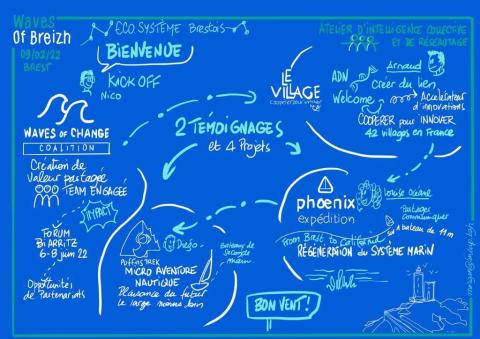 Waves
Of Breizh
09/02/22
BREST
ECO SYSTÈME Brestois
BIENVENUE
KICK OFF
Nico
ATELIER D'INTELLIGENCE COLLECTIVE
ET DE RÉSEAUTAGE
LE
VILLAGE
ADN
Welcome
Arnaud
Créer du lien
Accélérateur
d'innovations
COOPÉRER pour INNOVER
42 villages en France
WAVES OF CHANGE
COALITION
Création de
Valeur partagée
TEAM ENGAGÉE
IMPACT
FORUM
BIARRITZ
6-8 juin 22
Opportunités
de Partenariats
2 TÉMOIGNAGES
et 4 Projets
phoenix
expédition
Louise Océane
Partages
Communiquer
1 bateau de 11 m
From Brest to California
RÉGÉNÉRATION du SYSTÈME MARIN
Diégo
PUFFINS TREK
MICRO AVENTURE
NAUTIQUE
Plaisance du futur
le large moins loin
Bateaux de
Seconde
Main
BON VENT!